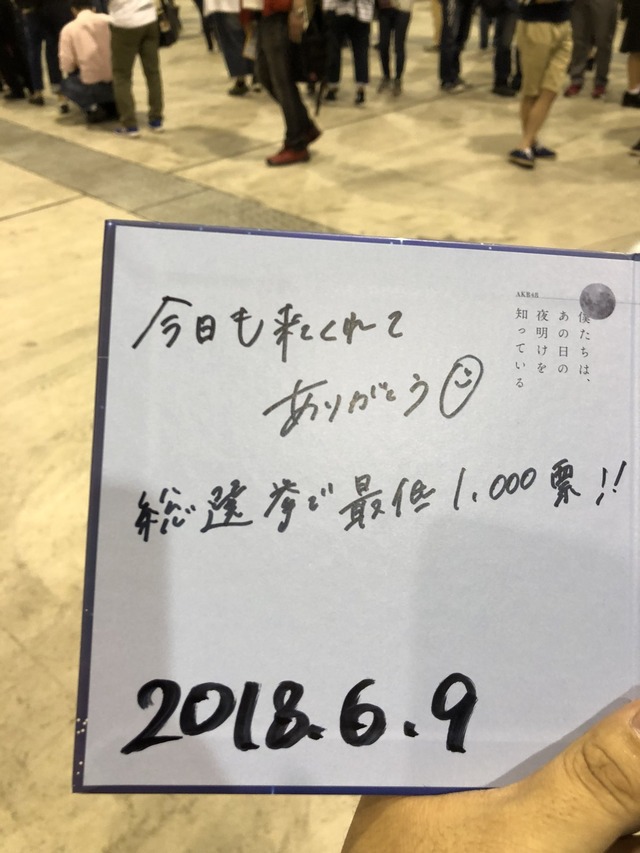 AKB48
僕たちは、
あの日の
夜明けを
知っている
今日も来てくれて
ありがとう
総選挙で最低1,000票!!
2018.6.9